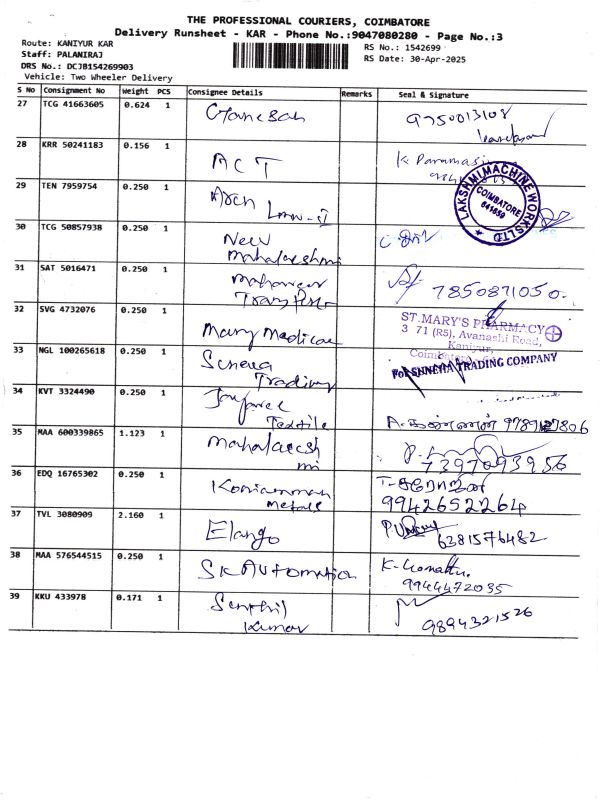 THE PROFESSIONAL COURIERS, COIMBATORE
Delivery Runsheet - KAR - Phone No.:9047080280 - Page No.:3
Route: KANIYUR KAR
RS No.: 1542699
Staff: PALANIRAJ
RS Date: 30-Apr-2025
DRS No.: DCJB154269903
Vehicle: Two Wheeler Delivery
S No Consignment No Weight PCS Consignee Details Remarks Seal & Signature
27 TCG 41663605 0.624 1 Ganesan 9750013108
28 KRR 50241183 0.156 1 ACT
K
LAKSHMI MACHINE WORKS LTD
COIMBATORE
29 TEN 7959754 0.250 1 Arch
LMW-II
30 TCG 50857938 0.250 1 New
Mahalakshmi
31 SAT 5016471 0.250 1 Mahaveer 7850871050
32 SVG 4732076 0.250 1 Mary Medical
ST.MARY'S PHARMACY
3 71 (R5), Avanashi Road,
Kaniyur,
33 NGL 100265618 0.250 1 Suneha
Trading
For SUNEHA TRADING COMPANY
34 KVT 3324490 0.250 1 Jayasree
Textile
35 MAA 600339865 1.123 1 Mahalaksh
mi
7397093956
36 EDQ 16765302 0.250 1 Koniamman
Metall
9942652264
37 TVL 3080909 2.160 1 Elango
6381576482
38 MAA 576544515 0.250 1 SK Automation
9944472035
39 KKU 433978 0.171 1 Senthil
Kumar
9894321526